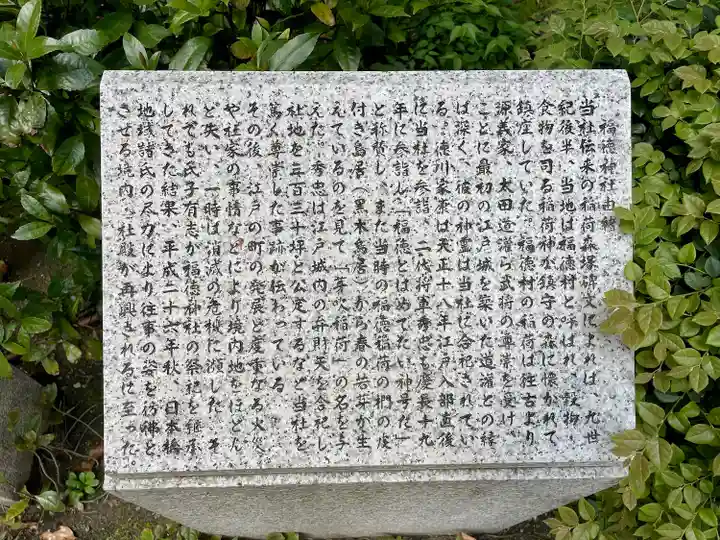 福徳神社由緒
当社伝来の稲荷森塚碑文によれば、九世
紀後半、当地は福徳村と呼ばれ、穀物・
食物を司る稲荷神が鎮守の森に懐かれて
鎮座していた。福徳村の稲荷は往古より
源義家、太田道灌ら武将の尊崇を受け、
ことに最初の江戸城を築いた道灌との縁
は深く、彼の神霊は当社に合祀されてい
る。徳川家康は天正十八年江戸入部直後
に当社を参詣、二代将軍秀忠も慶長十九
年に参詣し、「福徳とはめでたい神号だ」
と称賛し、また当時の福徳稲荷の椚の皮
付き鳥居(黒木鳥居)から春の若芽が生
えているのを見て「芽吹稲荷」の名を与
えた。秀忠は江戸城内の弁財天を合祀し、
社地を三百三十坪と公定するなど当社を
篤く尊崇した事跡が伝わっている。
その後、江戸の町の発展と度重なる火災
や社家の事情などにより境内地をほとん
ど失い、一時は消滅の危機に瀕した。そ
れでも氏子有志が福徳神社の祭祀を継承
してきた結果、平成二十六年秋、日本橋
地域諸氏の尽力により往事の姿を彷彿と
させる境内、社殿が再興されるに至った。